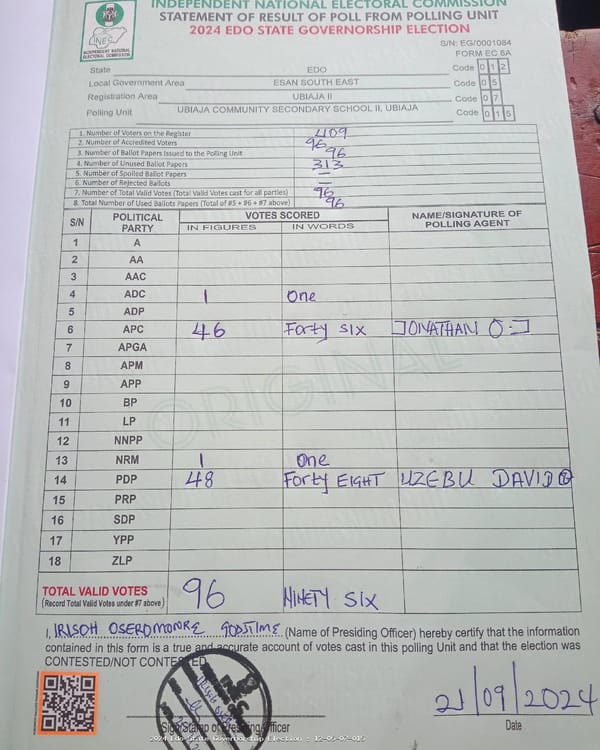 INDEPENDENT NATIONAL ELECTORAL COMMISSION
STATEMENT OF RESULT OF POLL FROM POLLING UNIT
2024 EDO STATE GOVERNORSHIP ELECTION
INEC
INDEPENDENT NATIONAL
ELECTORAL COMMISSION
S/N: EG/0001084
FORM EC 8A
State EDO Code 0 1 2
Local Government Area ESAN SOUTH EAST Code 0 5
Registration Area UBIAJA II Code 0 7
Polling Unit UBIAJA COMMUNITY SECONDARY SCHOOL II, UBIAJA Code 0 1 5
1. Number of Voters on the Register 409
2. Number of Accredited Voters 96
3. Number of Ballot Papers Issued to the Polling Unit 96
4. Number of Unused Ballot Papers 313
5. Number of Spoiled Ballot Papers —
6. Number of Rejected Ballots —
7. Number of Total Valid Votes (Total Valid Votes cast for all parties) 96
8. Total Number of Used Ballots Papers (Total of #5 + #6 + #7 above) 96
S/N POLITICAL PARTY VOTES SCORED NAME/SIGNATURE OF POLLING AGENT
IN FIGURES IN WORDS
1 A
2 AA
3 AAC
4 ADC 1 One
5 ADP
6 APC 46 Forty Six JONATHAN O.J
7 APGA
8 APM
9 APP
10 BP
11 LP
12 NNPP
13 NRM 1 One
14 PDP 48 Forty EIGHT UZEBU DAVID
15 PRP
16 SDP
17 YPP
18 ZLP
ORIGINAL
TOTAL VALID VOTES 96 NINETY SIX
(Record Total Valid Votes under #7 above)
I, IRISOH OSEROMONRE GODSTIME (Name of Presiding Officer) hereby certify that the information
contained in this form is a true and accurate account of votes cast in this polling Unit and that the election was
CONTESTED/NOT CONTESTED.
21/09/2024
Sign/Stamp of Presiding Officer Date
2024 Edo State Governorship Election : 12-05-07-015